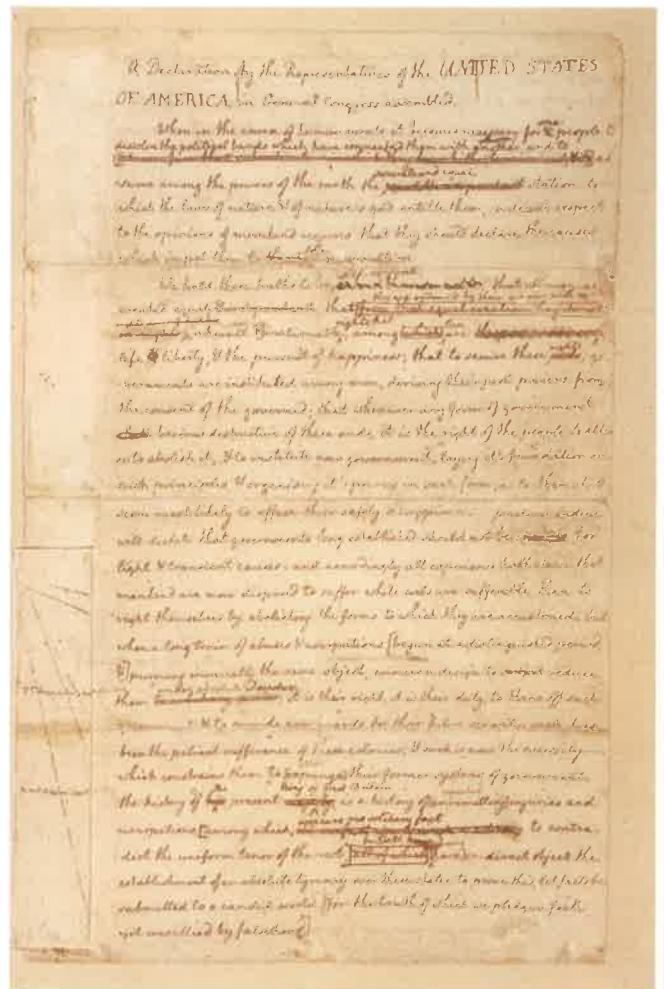 A Declaration by the Representatives of the UNITED STATES
OF AMERICA, in General Congress assembled.
When in the course of human events it becomes necessary for one people to
dissolve the political bands which have connected them with another, and to
sume among the powers of the earth the separate and equal station to
which the laws of nature & of nature's god entitle them, a decent respect
to the opinions of mankind requires that they should declare the causes
which impel them to the separation.
We hold these truths to be that all men are
created equal that
rights that among are
life liberty, & the pursuit of happiness; that to secure these rights, go
vernments are instituted among men, deriving their just powers from
the consent of the governed; that whenever any form of government
becomes destructive of these ends, it is the right of the people to alter
or to abolish it, & to institute new government, laying it's foundation on
such principles & organising it's powers in such form, as to them shall
seem most likely to effect their safety & happiness. prudence indeed
will dictate that governments long established should not be changed for
light & transient causes: and accordingly all experience hath shewn that
mankind are more disposed to suffer while evils are sufferable, than to
right themselves by abolishing the forms to which they are accustomed. but
when a long train of abuses & usurpations [begun at a distinguished period
&] pursuing invariably the same object, evinces a design to reduce
them under absolute Despotism it is their right, it is their duty, to throw off such
government & to provide new guards for their future security. such has
been the patient sufferance of these colonies; & such is now the necessity
which constrains them to [expunge] their former systems of government.
the history of the present King of Great Britain is a history of unremitting injuries and
usurpations, [among which, appears no solitary fact to contra
dict the uniform tenor of the rest in direct object the
establishment of an absolute tyranny over these states. to prove this let facts be
submitted to a candid world [for the truth of which we pledge a faith
yet unsullied by falsehood]